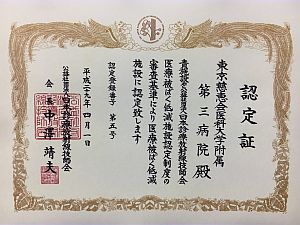 認定証
東京慈恵会医科大学附属
第三病院殿
貴施設は公益社団法人日本診療放射線技師会
医療被ばく低減施設認定制度の
審査基準により医療被ばく低減
施設に認定致します
認定登録番号 第五号
平成二十九年四月一日
公益社団法人日本診療放射線技師会
会長 中澤靖夫